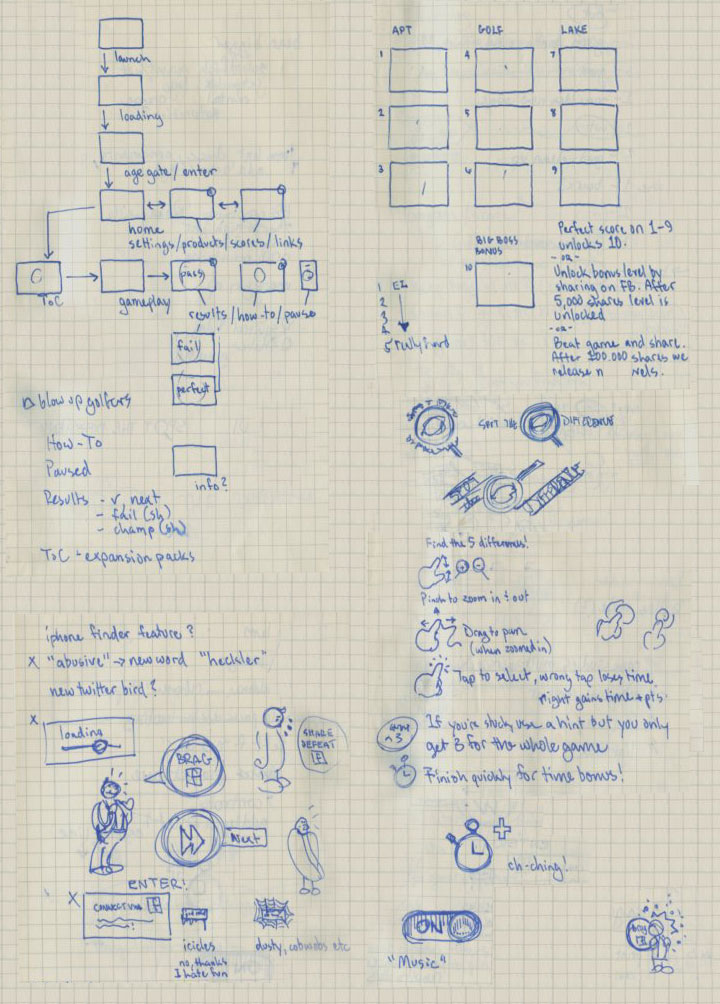 launch
loading
age gate/enter
home
settings/products/scores/links
ToC
gameplay
pass
results/how-to/pause
fail
perfect
blow up golfers
How-To
Paused
info?
Results - next
- fail (sh)
- champ (sh)
ToC - expansion packs
APT GOLF LAKE
1 4 7
2 5 8
3 6 9
BIG BOSS
BONUS
10
1
2
3
4
5
Perfect score on 1-9
unlocks 10.
-OR-
Unlock bonus level by
sharing on FB. After
5,000 shares level is
unlocked
-OR-
Beat game and share.
After 100.000 shares we
release
SPOT THE DIFFERENCE
Find the 5 differences!
Pinch to zoom in & out
Drag to pan
(when zoomed in)
Tap to select, wrong tap loses time
right gains time + pts.
If you're stuck, use a hint but you only
get 3 for the whole game
Finish quickly for time bonus!
ch-ching!
ON
"Music"
iphone finder feature?
X "abusive" → new word "heckler"
new twitter bird?
X
loading
BRAG
SHARE
DEFEAT
Next
ENTER!
X
CONNECTING
icicles
no, thanks
I hate fun
dusty, cobwebs etc